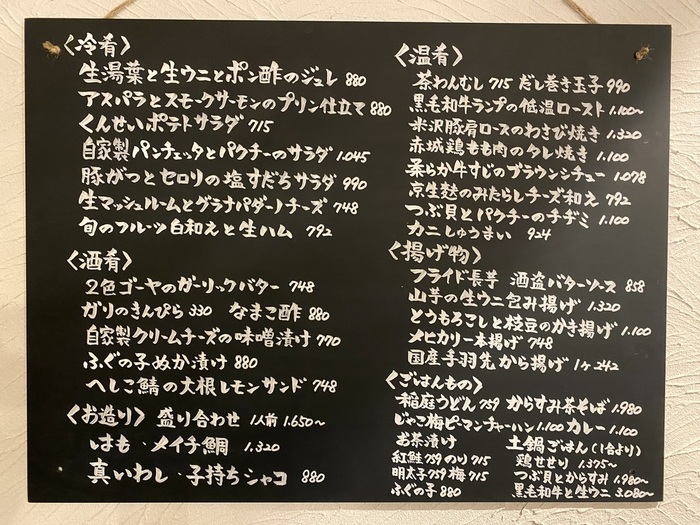 〈冷肴〉
生湯葉と生ウニとポン酢のジュレ 880
アスパラとスモークサーモンのプリン仕立て 880
くんせいポテトサラダ 715
自家製パンチェッタとパクチーのサラダ 1.045
豚がつとセロリの塩すだちサラダ 990
生マッシュルームとグラナパダーノチーズ 748
旬のフルーツ白和えと生ハム 792
〈酒肴〉
2色ゴーヤのガーリックバター 748
ガリのきんぴら 330 なまこ酢 880
自家製クリームチーズの味噌漬け 770
ふぐの子ぬか漬け 880
へしこ鯖の大根レモンサンド 748
〈お造り〉 盛り合わせ 1人前 1.650~
はも・メイチ鯛 1.320
真いわし・子持ちシャコ 880
〈温肴〉
茶わんむし 715 だし巻き玉子 990
黒毛和牛ランプの低温ロースト 1.100~
米沢豚肩ロースのわさび焼き 1.320
赤城鶏もも肉のタレ焼き 1.100
柔らか牛すじのブラウンシチュー 1.078
京生麩のみたらしチーズ和え 792
つぶ貝とパクチーのチヂミ 1.100
カニしゅうまい 924
〈揚げ物〉
フライド長芋 酒盗バターソース 858
山芋の生ウニ包み揚げ 1.320
とうもろこしと枝豆のかき揚げ 1.100
メヒカリ一本揚げ 748
国産手羽先から揚げ 1ヶ 242
〈ごはんもの〉
稲庭うどん 759 からすみ茶そば 1.980
じゃこ梅ピーマンチャーハン 1.100 カレー 1.100
お茶漬け 土鍋ごはん(1合より)
紅鮭 759 のり 715 鶏せせり 1.375~
明太子 759 梅 715 つぶ貝とからすみ 1.980~
ふぐの子 880 黒毛和牛と生ウニ 3.080~